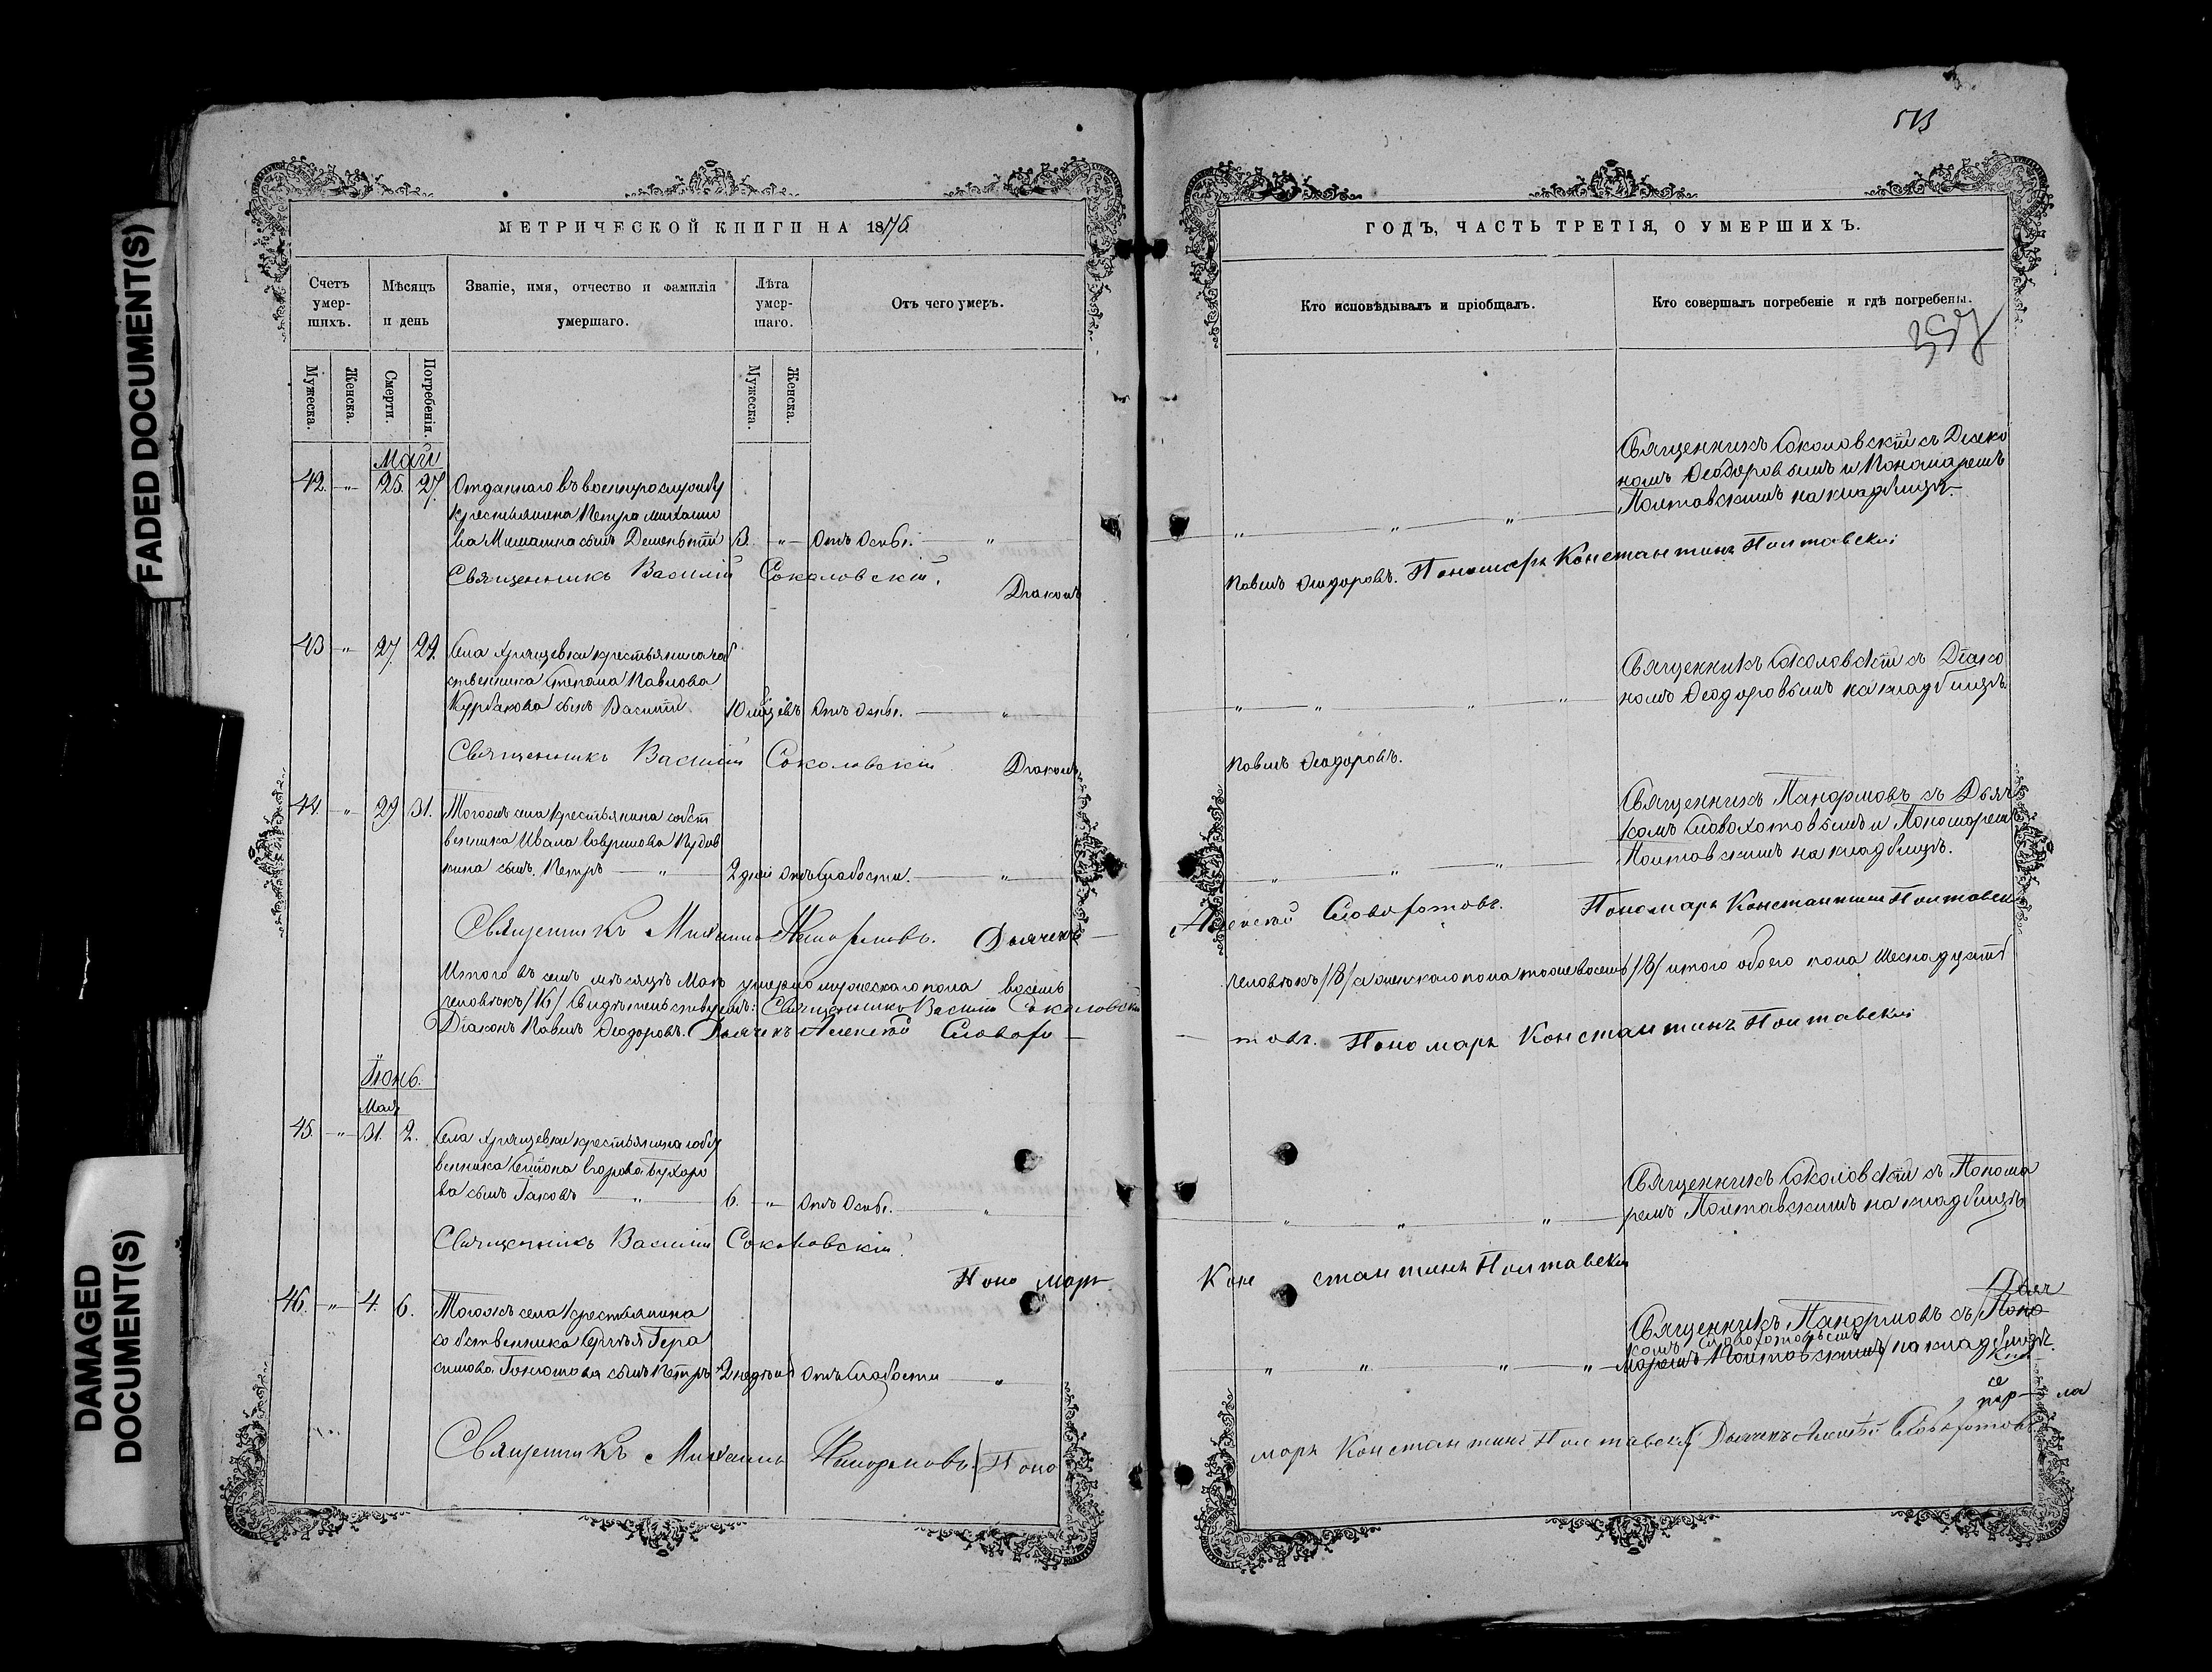 FADED DOCUMENT(S)
DAMAGED
DOCUMENT(S)
МЕТРИЧЕСКОЙ КНИГИ НА 1876
Счетъ умер-шихъ.
Мѣсяцъ и день
Званіе, имя, отчество и фамилія умершаго.
Лѣта умер-шаго.
Отъ чего умеръ.
Мужеска.
Женска.
Смерти.
Погребенія.
Мужеска.
Женска.
Май
42. " 25. 27. Отданнаго въ военную службу
крестьянина Петра Михайло
ва сынъ 3. " Отъ Оспы. "
Священникъ Василій Соколовскій. Діаконъ
43 " 27. 29. Села Хрящевки крестьянина соб
ственника Степана Павлова
Курбакова сынъ Василій 10 мѣсцевъ Отъ Оспы. "
Священникъ Василій Соколовскій Діаконъ
44. " 29 31. Тогожъ села крестьянина собст
венника Ивана Гаврилова
кина сынъ Петръ " 2 дней отъ слабости. "
Священникъ Михаилъ Панормовъ. Дьячекъ
Итого въ семъ мѣсяцѣ Маѣ умерло мужескаго пола восемь
человѣкъ /16/ Свидѣтельствуемъ: Священникъ Василій Соколовскій
Діаконъ Павелъ Ѳеодоровъ. Дьячекъ Алексѣй Словохо
Іюнь.
Мая
45. " 31. 2. Села Хрящевки крестьянина собст
венника Егорова Бухаро
ва сынъ Іаковъ " 6. " Отъ Оспы. "
Священникъ Василій Соколовскій.
Поно марь
46. " 4. 6. Тогожъ села крестьянина
собственника Сергѣя Гера
симова сынъ Петръ 2 недѣль Отъ Слабости "
Священникъ Михаилъ Панормовъ. Поно
513
ГОДЪ, ЧАСТЬ ТРЕТІЯ, О УМЕРШИХЪ.
Кто исповѣдывалъ и пріобщалъ.
Кто совершалъ погребеніе и гдѣ погребены.
Священникъ Соколовскій съ Діако
номъ Ѳеодоровымъ и Пономаремъ
Полтавскимъ на кладбищѣ.
Павелъ Ѳеодоровъ. Пономарь Константинъ Полтавскій
Священникъ Соколовскій съ Діако
номъ Ѳеодоровымъ на кладбищѣ.
Павелъ Ѳеодоровъ.
Священникъ Панормовъ съ Дьяч
комъ Словохотовымъ и Пономаремъ
Полтавскимъ на кладбищѣ.
Алексѣй Словохотовъ. Пономарь Константинъ Полтавскій
человѣкъ /8/ а женскаго пола тоже восемь /8/ итого обоего пола шеснадцать
товъ. Пономарь Константинъ Полтавскій
Священникъ Соколовскій съ Понома
ремъ Полтавскимъ на кладбищѣ.
Константинъ Полтавскій
Дьяч
Священникъ Панормовъ съ Поно
комъ Словохотовымъ
маремъ Полтавскимъ на кладбищѣ.
марь Константинъ Полтавскій Дьячекъ Алексѣй Словохотовъ